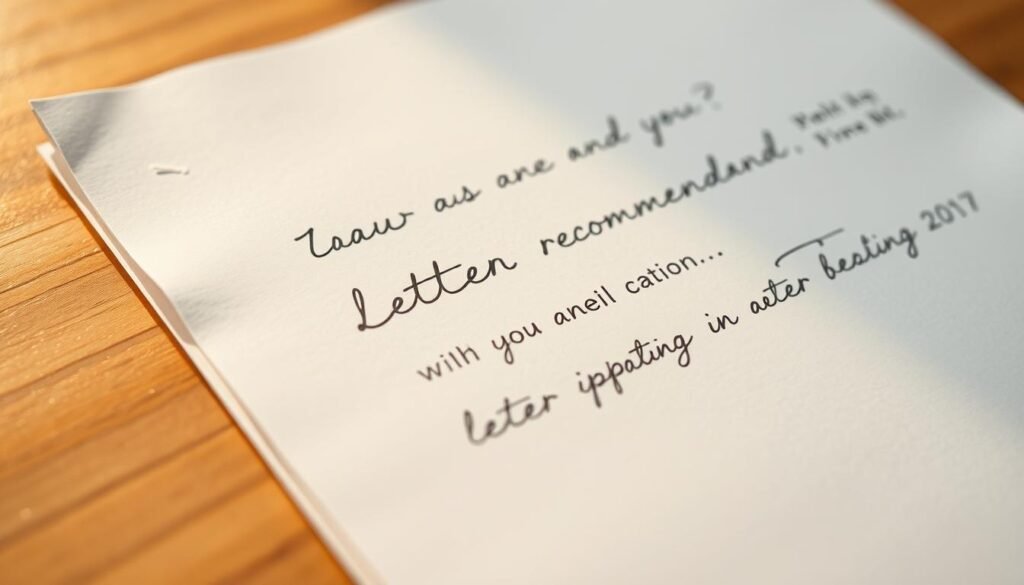 Taaur aus ane and you?
Letten recommendand.
wilh you aneil cation...
leter ippating in aeter beating 2017